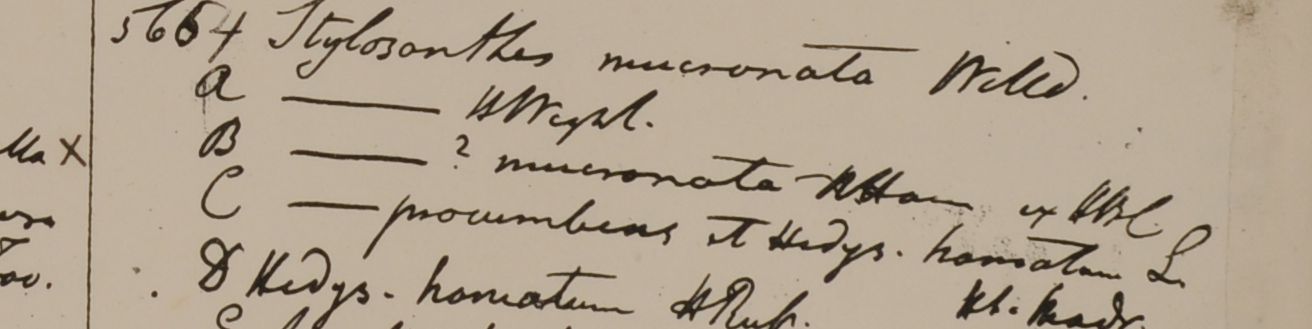 5664 Stylosanthes mucronata Willd.
A —— HWight.
B —— ? mucronata HHam ex HBC
C —— procumbens et Hedys. hamatum L.
D Hedys. hamatum HRub. Hb. Madr.